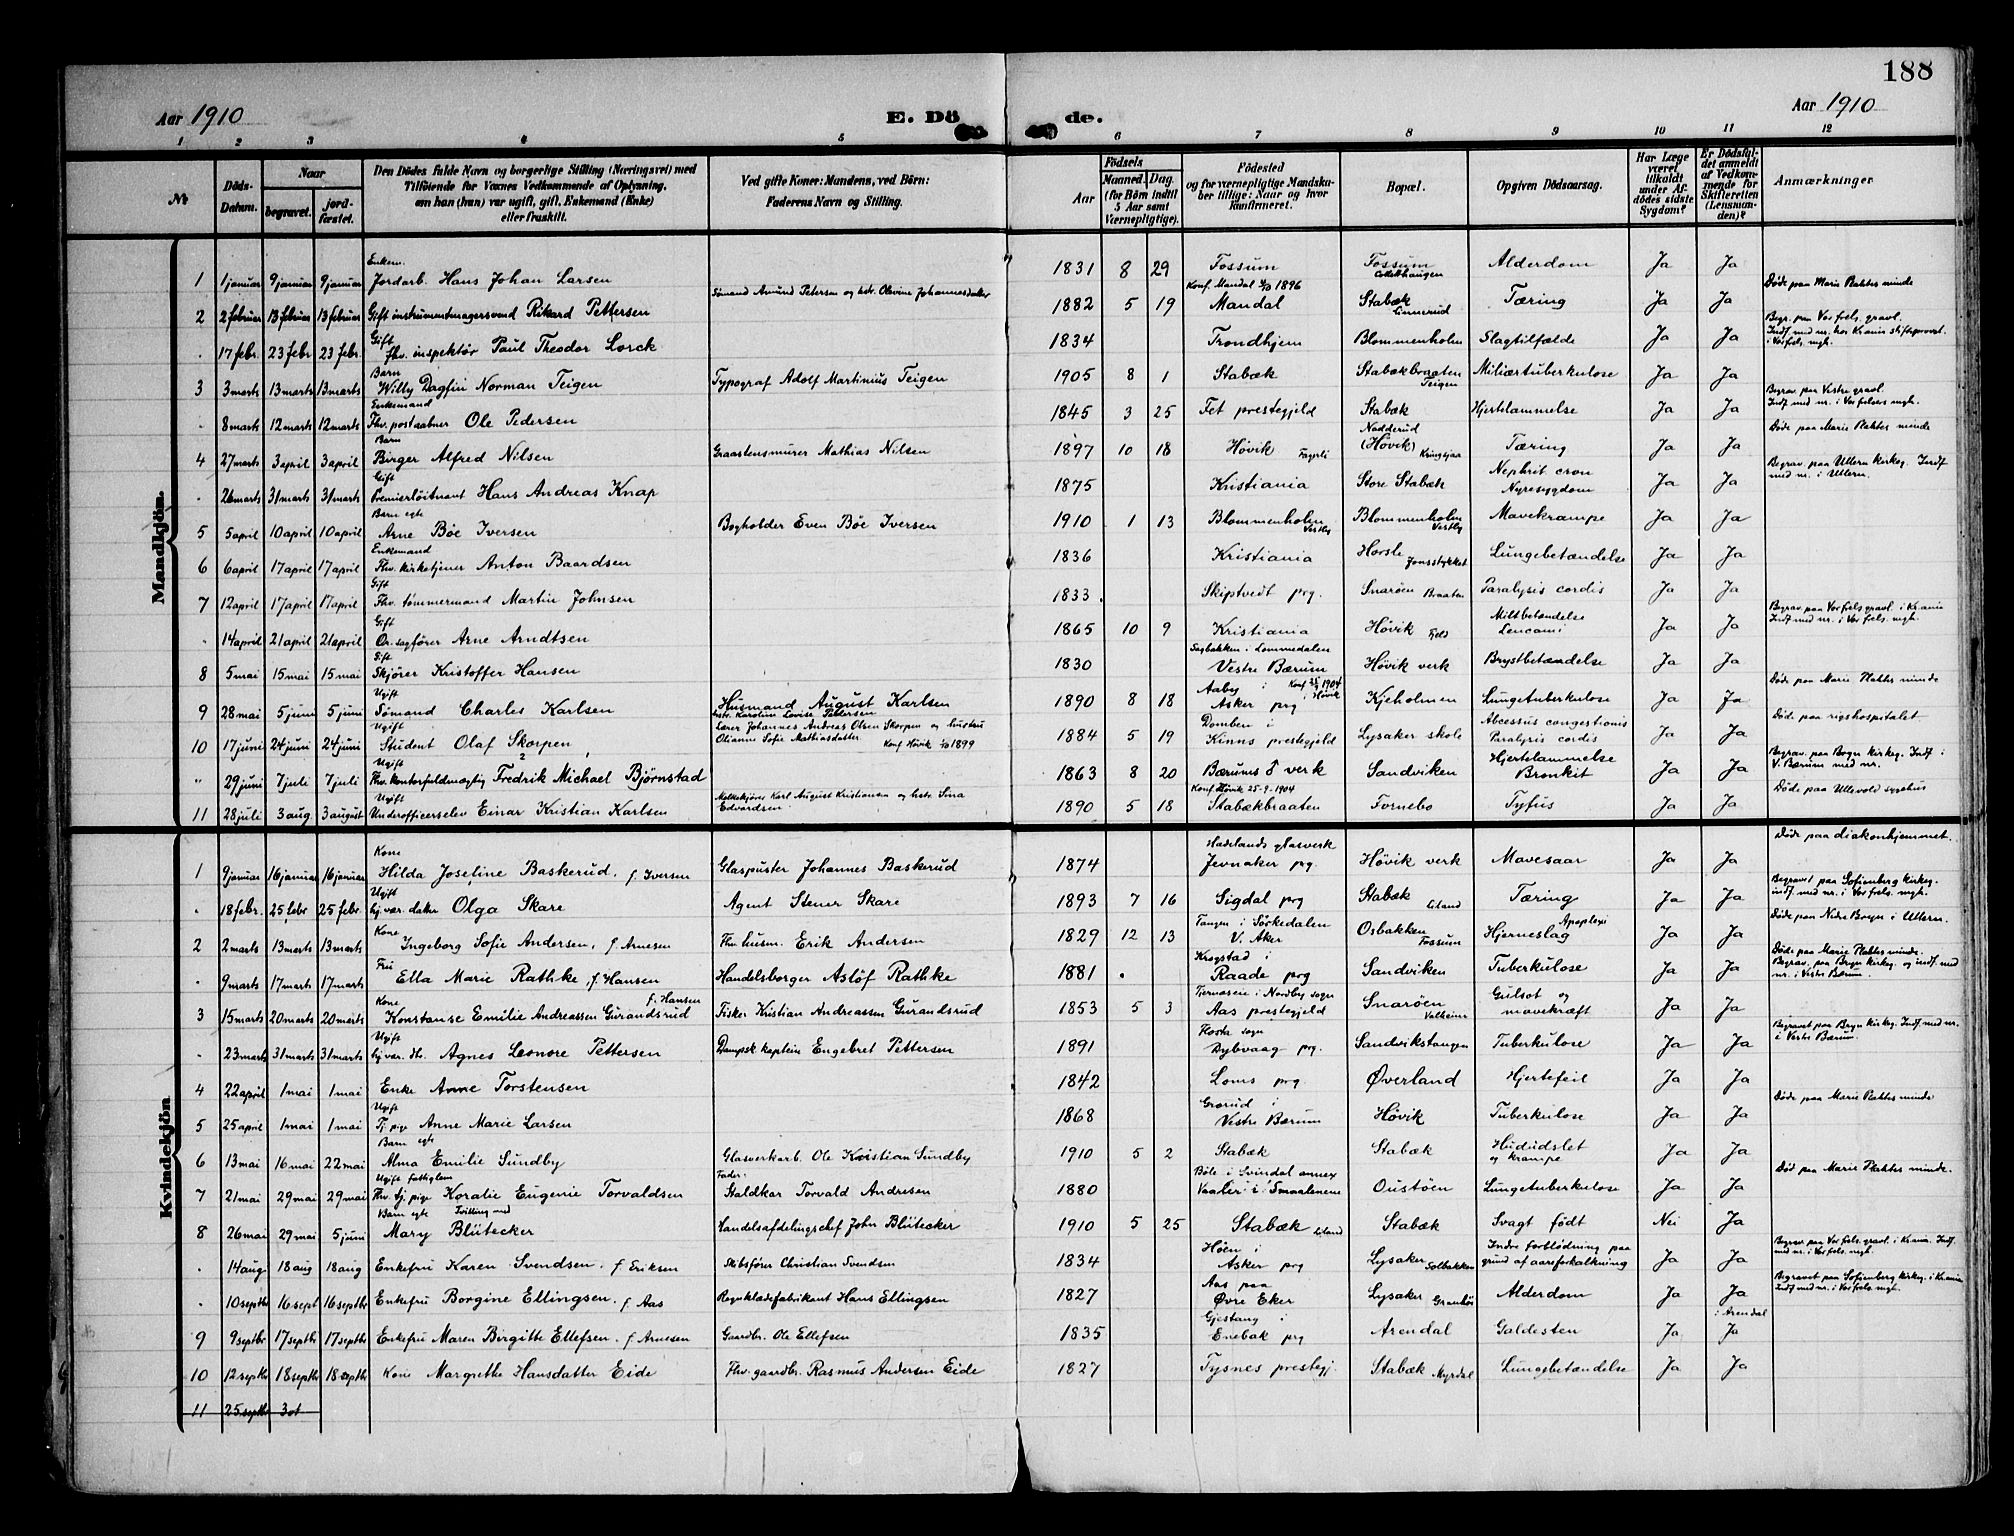 188
Aar 1910
E. Dö
de.
Aar 1910
1 2 3 4 5 6 7 8 9 10 11 12
№
Döds-
Datum.
Naar
begravet.
jord-
fæstet.
Den Dödes fulde Navn og borgerlige Stilling (Næringsvei) med
Tilföiende for Voxnes Vedkommende af Oplysning,
om han (hun) var ugift, gift, Enkemand (Enke)
eller fraskilt.
Ved gifte Koner: Mandens, ved Börn:
Faderens Navn og Stilling.
Födsels
Aar
Maaned. Dag.
(for Börn indtil
5 Aar samt
Værnepligtige).
Födested
og for værnepligtige Mandska-
ber tillige: Naar og hvor
konfirmeret.
Bopæl.
Opgiven Dödsaarsag.
Har Læge
været
tilkaldt
under Af-
dödes sidste
Sygdom?
Er Dödsfal-
det anmeldt
af Vedkom-
mende for
Skifteretten
(Lensman-
den)?
Anmærkninger
Mandkjön.
Enkem.
1 1 januar 9 januar 9 januar Jordarb. Hans Johan Larsen 1831 8 29 Fossum Fossum Alderdom Ja Ja
Døde paa Marie Plahtes minde
Sømand Amund Petersen og hstr. Olevine Johannesdatter Konf. Mandal 1896
2 2 februar 13 februar 13 februar Gift instrumentmagersvend Rikard Pettersen 1882 5 19 Mandal Stabæk Linnerud Tæring Ja Ja
Begr. paa Vor frels. gravl.
Indf. med nr. hos Krania stiftsprovst
i Vor frels. mgh.
Gift
" 17 febr. 23 febr 23 febr. Fhv. inspektør Paul Theodor Lorck 1834 Trondhjem Blommenholm Slagtilfælde Ja Ja
Barn
3 3 marts 13 marts 13 marts Willy Dagfin Norman Teigen Typograf Adolf Martinius Teigen 1905 8 1 Stabæk Stabækbraaten Teigen Miliærtuberkulose Ja Ja
Begrav. paa Vestre gravl.
Indf med nr. i Vor frelsers mgh.
Enkemand
" 8 marts 12 marts 12 marts Fhv. postaabner Ole Pedersen 1845 3 25 Fet prestegjeld Stabæk Nadderud Hjertelammelse Ja Ja
Døde paa Marie Plahtes minde
Barn
4 27 marts 3 april 3 april Birger Alfred Nilsen Graastensmurer Mathias Nilsen 1897 10 18 Høvik Fagerli (Høvik) Kringsjaa Tæring Ja Ja
Begrav. paa Ullern kirkeg. Indf
med nr. i Ullern.
Gift
" 26 marts 31 marts 31 marts Premierløitnant Hans Andreas Knap 1875 Kristiania Store Stabæk Nephrit. cron Nyresygdom Ja Ja
Barn egte
5 5 april 10 april 10 april Arne Bøe Iversen Bogholder Even Bøe Iversen 1910 1 13 Blommenholm Vestby Blommenholm Vestby Mavekrampe Ja Ja
Enkemand
6 6 april 17 april 17 april Fhv. kirketjener Anton Baardsen 1836 Kristiania Horsle Jonsstykket Lungebetændelse Ja Ja
Gift
7 12 april 17 april 17 april Fhv. tømmermand Martin Johnsen 1833 Skipstvedt prg. Snarøen Braaten Paralysis cordis Ja Ja
Begrav. paa Vor frels gravl. i Krania
Indf med nr. i Vor frels. mgh.
Gift
" 14 april 21 april 21 april Or. sagfører Arne Arndtsen 1865 10 9 Kristiania Høvik Miltbetændelse Ja Ja
Gift Sagbakken i Lommedalen
8 5 mai 15 mai 15 mai Skjører Kristoffer Hansen 1830 Vestre Bærum Høvik verk Brystbetændelse Ja Ja
Døde paa Marie Plahtes minde
Ugift Aaby i Konf. 1904 i Høvik
9 28 mai 5 juni 5 juni Sømand Charles Karlsen Husmand August Karlsen
hstr. Karoline Lovise Pettersen 1890 8 18 Asker prg Kjeholmen Lungetuberkulose Ja Ja
Døde paa rigshospitalet.
Ugift Lærer Johannes Andreas Olsen Skorpen og hustru
10 17 juni 24 juni 24 juni Student Olaf Skorpen Olianne Sofie Mathiasdatter Konf Høvik 1/10 1899 1884 5 19 Domben i Kinns prestegjeld Lysaker skole Abcessus congestionis Paralysis cordis Ja Ja
Begrav. paa Bryn kirkeg. Indf. i
V. Bærum med nr.
Ugift
" 29 juni 7 juli 7 juli Fhv. kontorfuldmægtig Fredrik Michael Bjørnstad 1863 8 20 Bærums verk Sandviken Hjertelammelse Bronkit Ja Ja
Døde paa Ullevold sygehus
Ugift Melkekjører Karl August Kristiansen og hstr. Ina Konf. Høvik 25-9-1904
11 28 juli 3 aug 3 august Underofficerselev Einar Kristian Karlsen Edvardsen 1890 5 18 Stabækbraaten Fornebo Tyfus Ja Ja
Kvindekjön
Døde paa diakonhjemmet.
Kone Hadelands glasverk
1 9 januar 16 januar 16 januar Hilda Josefine Baskerud, f. Iversen Glaspuster Johannes Baskerud 1874 Jevnaker prg. Høvik verk Mavesaar Ja Ja
Begravet paa Sofienberg kirkeg.
indf med nr. i Vor frels. mgh.
Ugift
" 18 febr. 25 febr 25 febr. hj.vær. datter Olga Skare Agent Stener Skare 1893 7 16 Sigdal prg Stabæk Liland Tæring Ja Ja
Døde paa Nedre Bogen i Ullern.
Kone Tangen i Sørkedalen
2 2 marts 13 marts 13 marts Ingeborg Sofie Andersen, f Arnesen Fhv. husm. Erik Andersen 1829 12 13 V. Aker Osbakken Fossum Hjerneslag Apoplexi Ja Ja
Døde paa Marie Plahtes minde.
Begrav. paa Bryn kirkeg. og indf. med
nr. i Vestre Bærum.
Fru Krogstad i
" 9 marts 17 marts 17 marts Ella Marie Rathke, f. Hansen Handelsborger Astöf Rathke 1881 Raade prg Sandviken Tuberkulose Ja Ja
Kone f. Hansen i Nordby sogn
3 15 marts 20 marts 20 marts Konstanse Emilie Andreassen Gurandsrud Fisker Kristian Andreassen Gurandsrud 1853 5 3 Aas prestegjeld Snarøen Valheim Gulsot og mavekræft Ja Ja
Begravet paa Bryn kirkeg. Indf. med nr.
i Vestre Bærum.
Ugift sogn
" 23 marts 31 marts 31 marts hj.vær. dtr. Agnes Leonore Pettersen Dampsk.kaptein Engebret Pettersen 1891 Dybvaag prg. Sandvikstangen Tuberkulose Ja Ja
4 22 april 1 mai 1 mai Enke Anne Torstensen 1842 Loms prg Øverland Hjertefeil Ja Ja
Døde paa Marie Plahtes minde
Ugift Grorud i
5 25 april 1 mai 1 mai Tj. pige Anne Marie Larsen 1868 Vestre Bærum Høvik Tuberkulose Ja Ja
Barn egte
6 13 mai 16 mai 22 mai Alma Emilie Sundby Glasverkarb. Ole Kristian Sundby 1910 5 2 Stabæk Stabæk Hududslet og krampe Ja Ja
Død paa Marie Plahtes minde.
Ugift fattiglem Fader: Böle i Svindal annex
7 21 mai 29 mai 29 mai Fhv. tj. pige Koralie Eugenie Torvaldsen Staldkar Torvald Andresen 1880 Vaaler i Smaalenene Oustøen Lungetuberkulose Ja Ja
Barn egte Tvilling med
8 26 mai 29 mai 5 juni Mary Blütecker Handelsafdelingschef John Blütecker 1910 5 25 Stabæk Liland Stabæk Svagt født Nei Ja
Begrav. paa Vor frels. gravl. i Krania. Indf.
med nr. i Vor frels. mgh.
Høen i Indre forblødning paa
" 14 aug 18 aug 18 aug Enkefru Karen Svendsen, f. Eriksen Skibsfører Christian Svendsen 1834 Asker prg Lysaker Solbakken grund af aareforkalkning Ja Ja
Begravet paa Sofienberg kirkeg. i Krania
Indf med nr. i Vor frels. mgh.
Aas paa
" 10 septbr 16 sept 16 septbr Enkefru Borgine Ellingsen, f Aas Regnklædefabrikant Hans Ellingsen 1827 Øvre Eker Lysaker Alderdom Ja Ja
Gjestang i i Arendal
9 9 septbr 17 septbr 17 septbr Enkefru Maren Birgitte Ellefsen, f. Arnesen Gaardbr. Ole Ellefsen 1835 Enebak prg Arendal Galdesten Ja Ja
10 12 septbr 18 septbr 18 septbr Kone Margrethe Hansdatter Eide Fhv. gaardbr. Rasmus Andersen Eide 1827 Tysnes prestegj. Stabæk Myrdal Lungebetændelse Ja Ja
11 25 septbr 3 ot